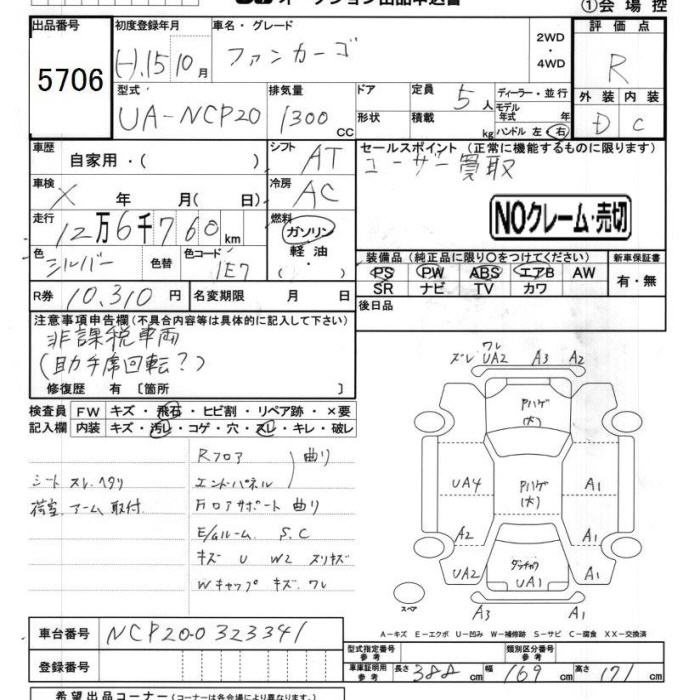 ①会場控
出品番号 初度登録年月 車名・グレード 評価点
5706 H.15 10月 ファンカーゴ 2WD ・ 4WD R
型式 排気量 ドア 定員 ディーラー・並行 外装 内装
UA-NCP20 1300 CC 5人 モデル年式 年 D C
形状 積載 kg ハンドル 左 右
車歴 自家用・( ) シフト AT セールスポイント (正常に機能するものに限ります)
車検 X 年 月( 日) 冷房 AC ユーザー買取
走行 12万6千760km 燃料 ガソリン・軽油・( ) NOクレーム・売切
色 シルバー 色替 色コード 1E7
装備品(純正品に限り○をつけてください) 新車保証書
PS PW ABS エアB AW 有・無
SR ナビ TV カワ
R券 10,310円 名変期限 月 日 後日品
注意事項申告欄(不具合内容等は具体的に記入して下さい)
非課税車両
(助手席回転?)
修復歴 有 [箇所 ]
検査員 FW キズ・飛石・ヒビ割・リペア跡・×要
記入欄 内装 キズ・汚レ・コゲ・穴・スレ・キレ・破レ
シート スレ.ヘタリ
荷室 アーム 取付
Rフロア
エンドパネル
曲り
フロアサポート 曲り
E/gルーム S.C
キズ U W2 スリキズ
Wキャップ キズ ワレ
ズレ ワレ UA2 A3 A2
Pハゲ (大)
UA4 Pハゲ (大) A1
A2 A1
UA2 UA1 A1
スペア A3 A1
A-キズ E-エクボ U-凹み W-補修跡 S-サビ C-腐食 XX-交換済
車台番号 NCP20-0323341
登録番号
型式指定番号 参考 類別区分番号 参考
車庫証明用 参考 長さ 388cm 幅 169cm 高さ 171cm
希望出品コーナー